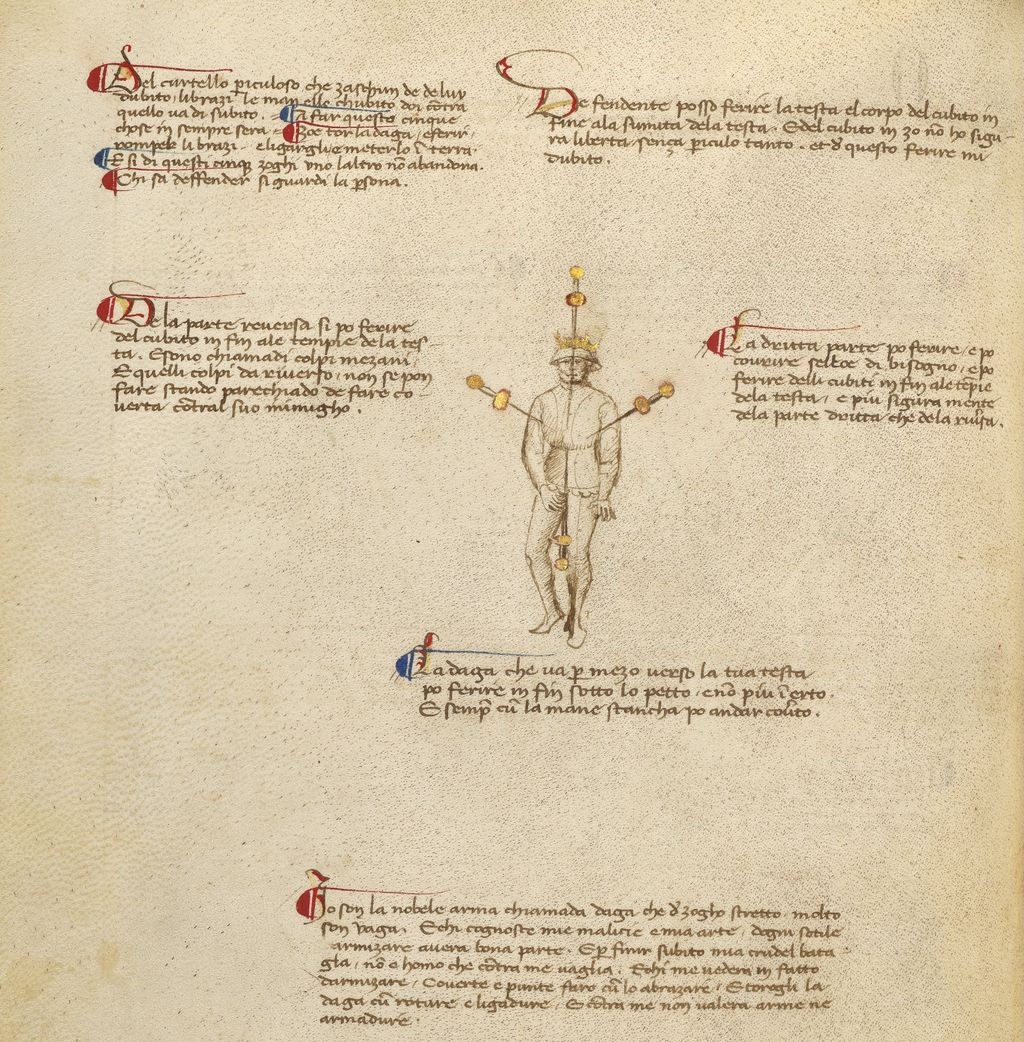 Del cortello piculoso che zaschun de de luy
dubito, li brazi le man elli chubito doi contra
quello va di subito. A far questo cinque
chose m sempre sera. Zoe tor la daga, e ferir,
romper li brazi e ligargli e meterlo i terra.
E si di questi cinque zoghi uno laltro no abandona.
Chi sa deffender si guardi la psona.
De fendente posso ferire la testa el corpo del cubito in
fine a la sumita dela testa. E del cubito in zo no ho sigu-
ra liberta, sença piculo tanto. et d questo ferire mi
dubito.
De la parte reversa si po ferire
del cubito in fin ale tempie de la tes-
ta. E sono chiamadi colpi mezani
E quelli colpi da riverso, non se pon
fare stando parechiado de fare co-
verta contral suo inimigho.
La dritta parte po ferire, e po
courire selloe di bisogno, e po
ferire delli cubiti in fin ale tepie
dela testa, e piu sigura mente
dela parte dritta che dela rivsa.
La daga che va p mezo verso la tua testa
po ferire in fin sotto lo petto, e no piu i erto.
E semp cu la mane stancha po andar couto.
Io son la nobele arma chiamada daga che d zogho stretto, molto
son vaga. E chi cognosce mie malicie e mia arte, dogni sotile
armizare avera bona parte. E p finir subito mia crudel bata-
glia, no e homo che contra me vaglia. E chi me vedera in fatto
darmizare, Coverte e punte faro cu lo abrazare, E torogli la
daga cu roture e ligadure, E contra me non valera arme ne
armadure.